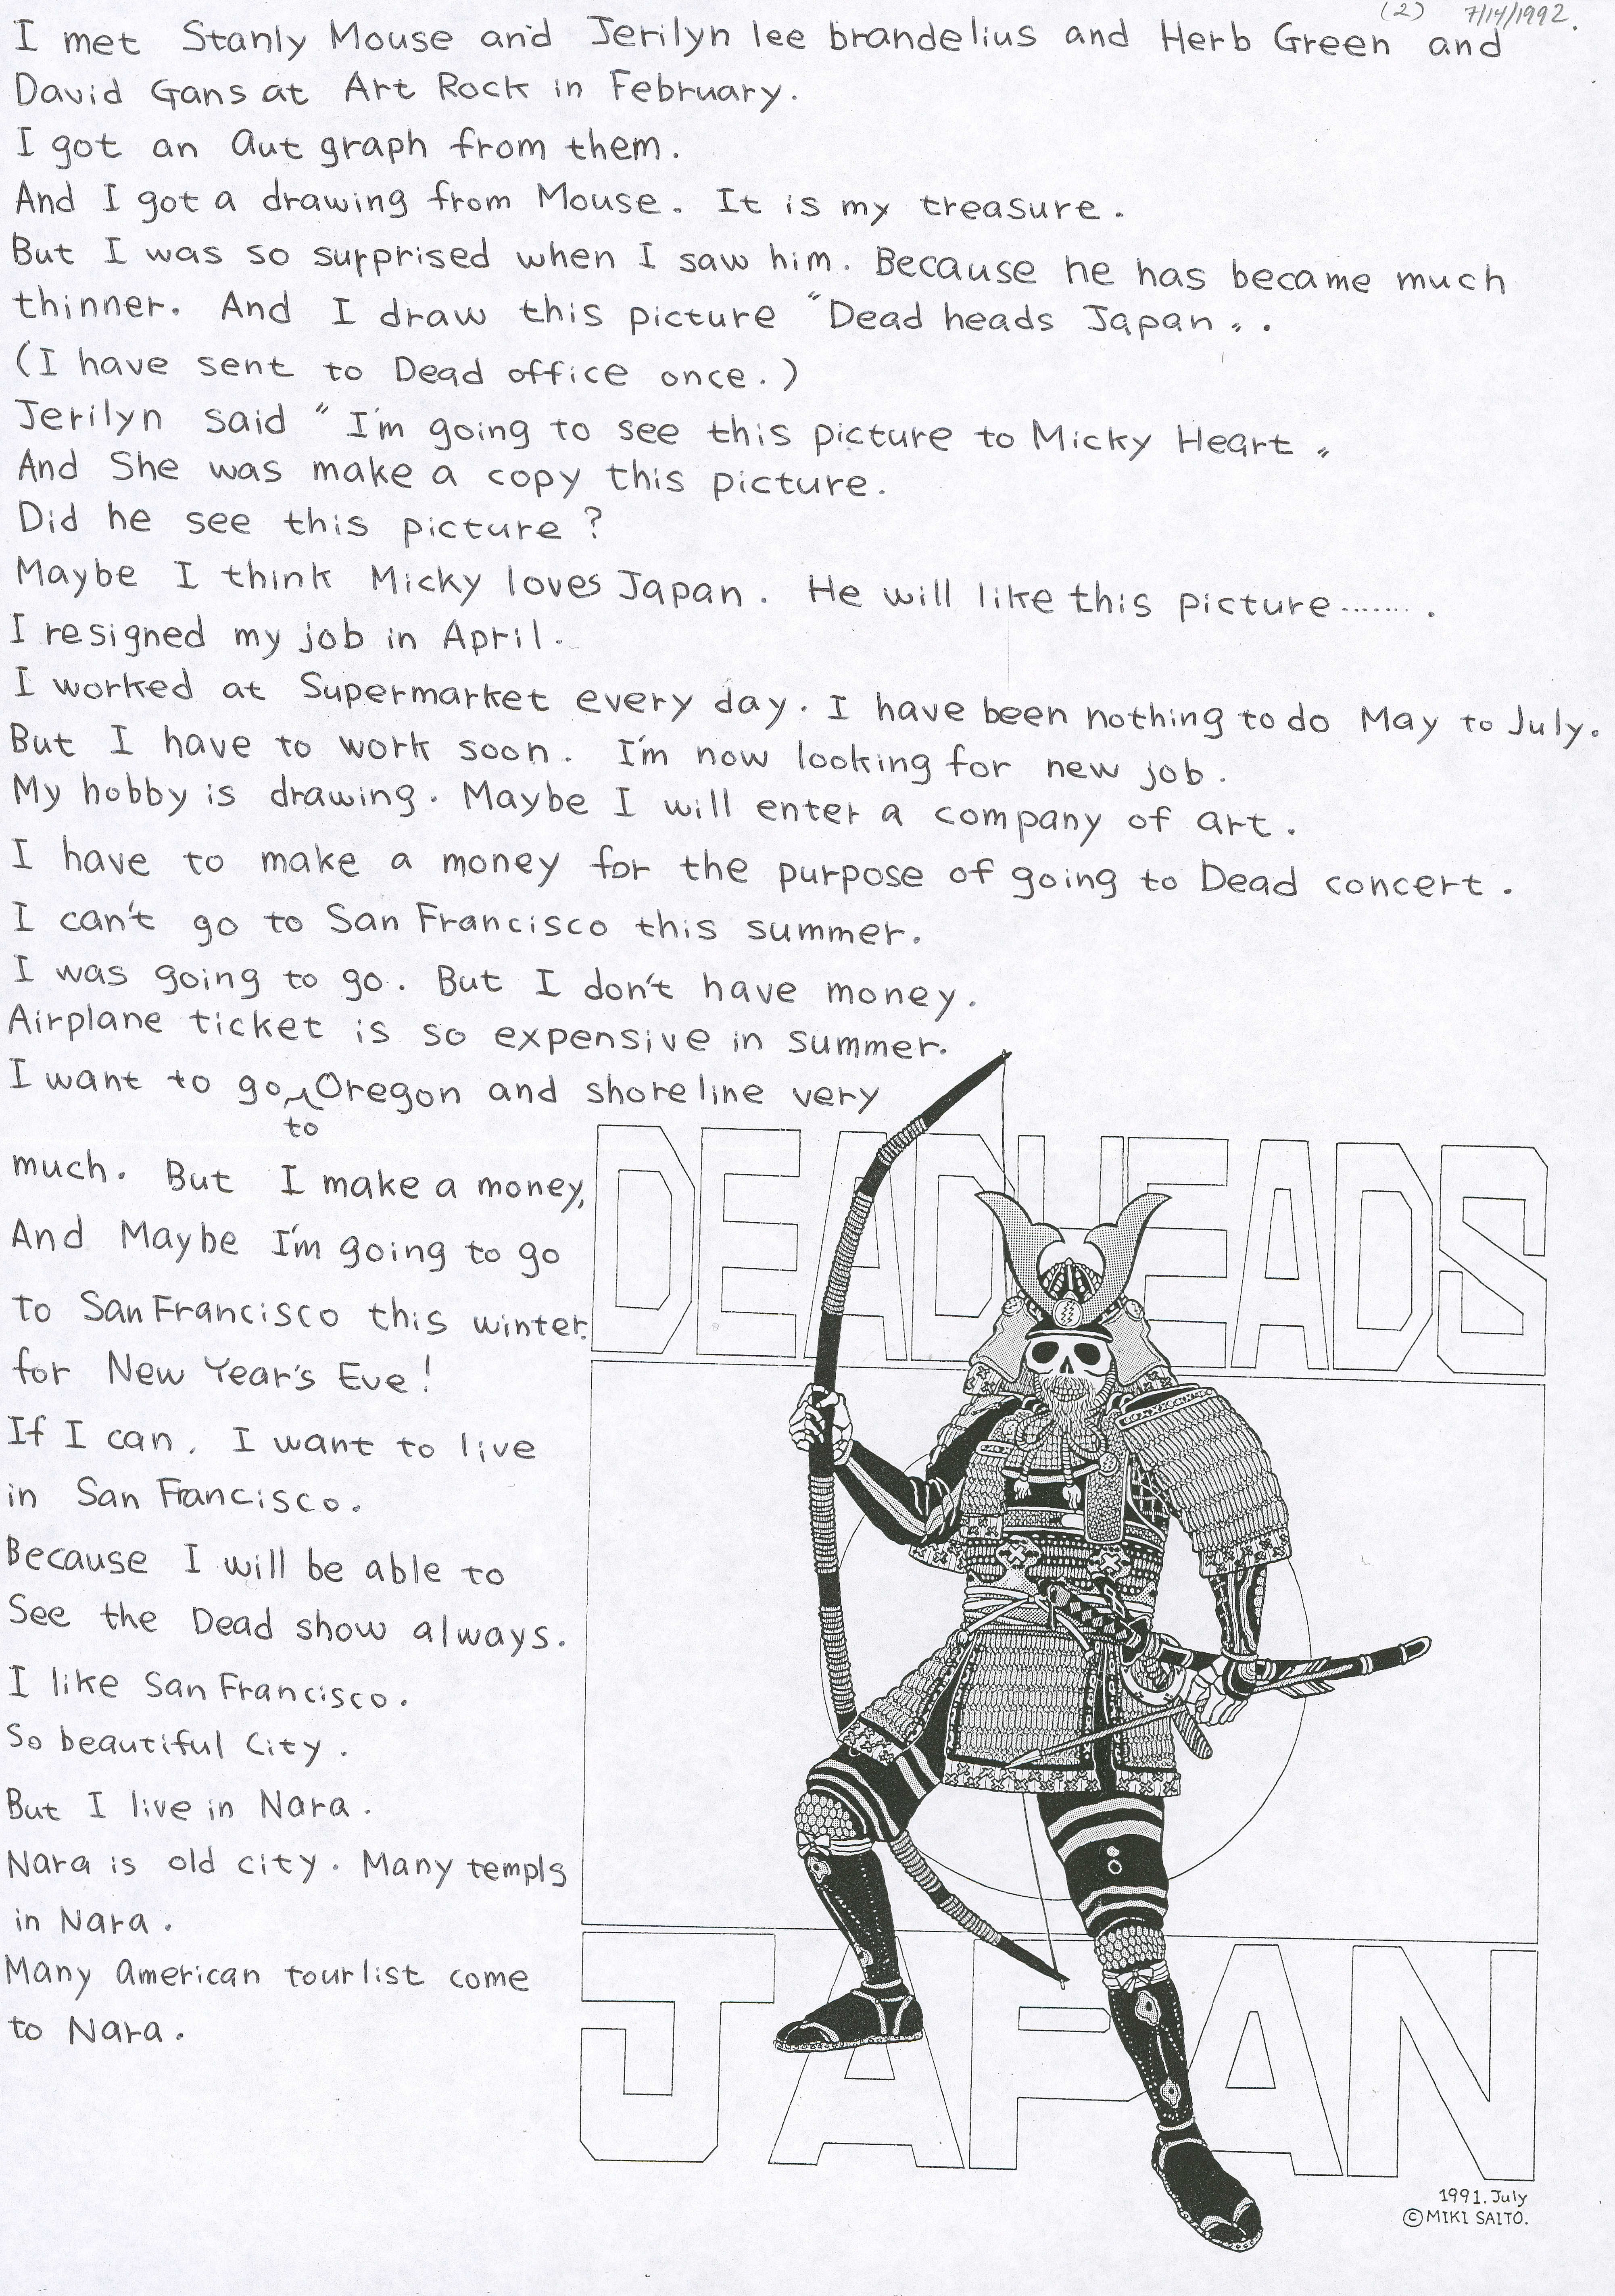 (2) 7/14/1992.
I met Stanly Mouse and Jerilyn lee brandelius and Herb Green and
David Gans at Art Rock in February.
I got an aut graph from them.
And I got a drawing from Mouse. It is my treasure.
But I was so surprised when I saw him. Because he has became much
thinner. And I draw this picture "Dead heads Japan".
(I have sent to Dead office once.)
Jerilyn said "I'm going to see this picture to Micky Heart"
And She was make a copy this picture.
Did he see this picture?
Maybe I think Micky loves Japan. He will like this picture........
I resigned my job in April.
I worked at Supermarket every day. I have been nothing to do May to July.
But I have to work soon. I'm now looking for new job.
My hobby is drawing. Maybe I will enter a company of art.
I have to make a money for the purpose of going to Dead concert.
I can't go to San Francisco this summer.
I was going to go. But I don't have money.
Airplane ticket is so expensive in summer.
I want to go to Oregon and shoreline very
much. But I make a money,
And Maybe I'm going to go
to San Francisco this winter.
for New Year's Eve!
If I can. I want to live
in San Francisco.
Because I will be able to
See the Dead show always.
I like San Francisco.
So beautiful City.
But I live in Nara.
Nara is old city. Many templs
in Nara.
Many american tourlist come
to Nara.
DEADHEADS
JAPAN
1991. July
©MIKI SAITO.